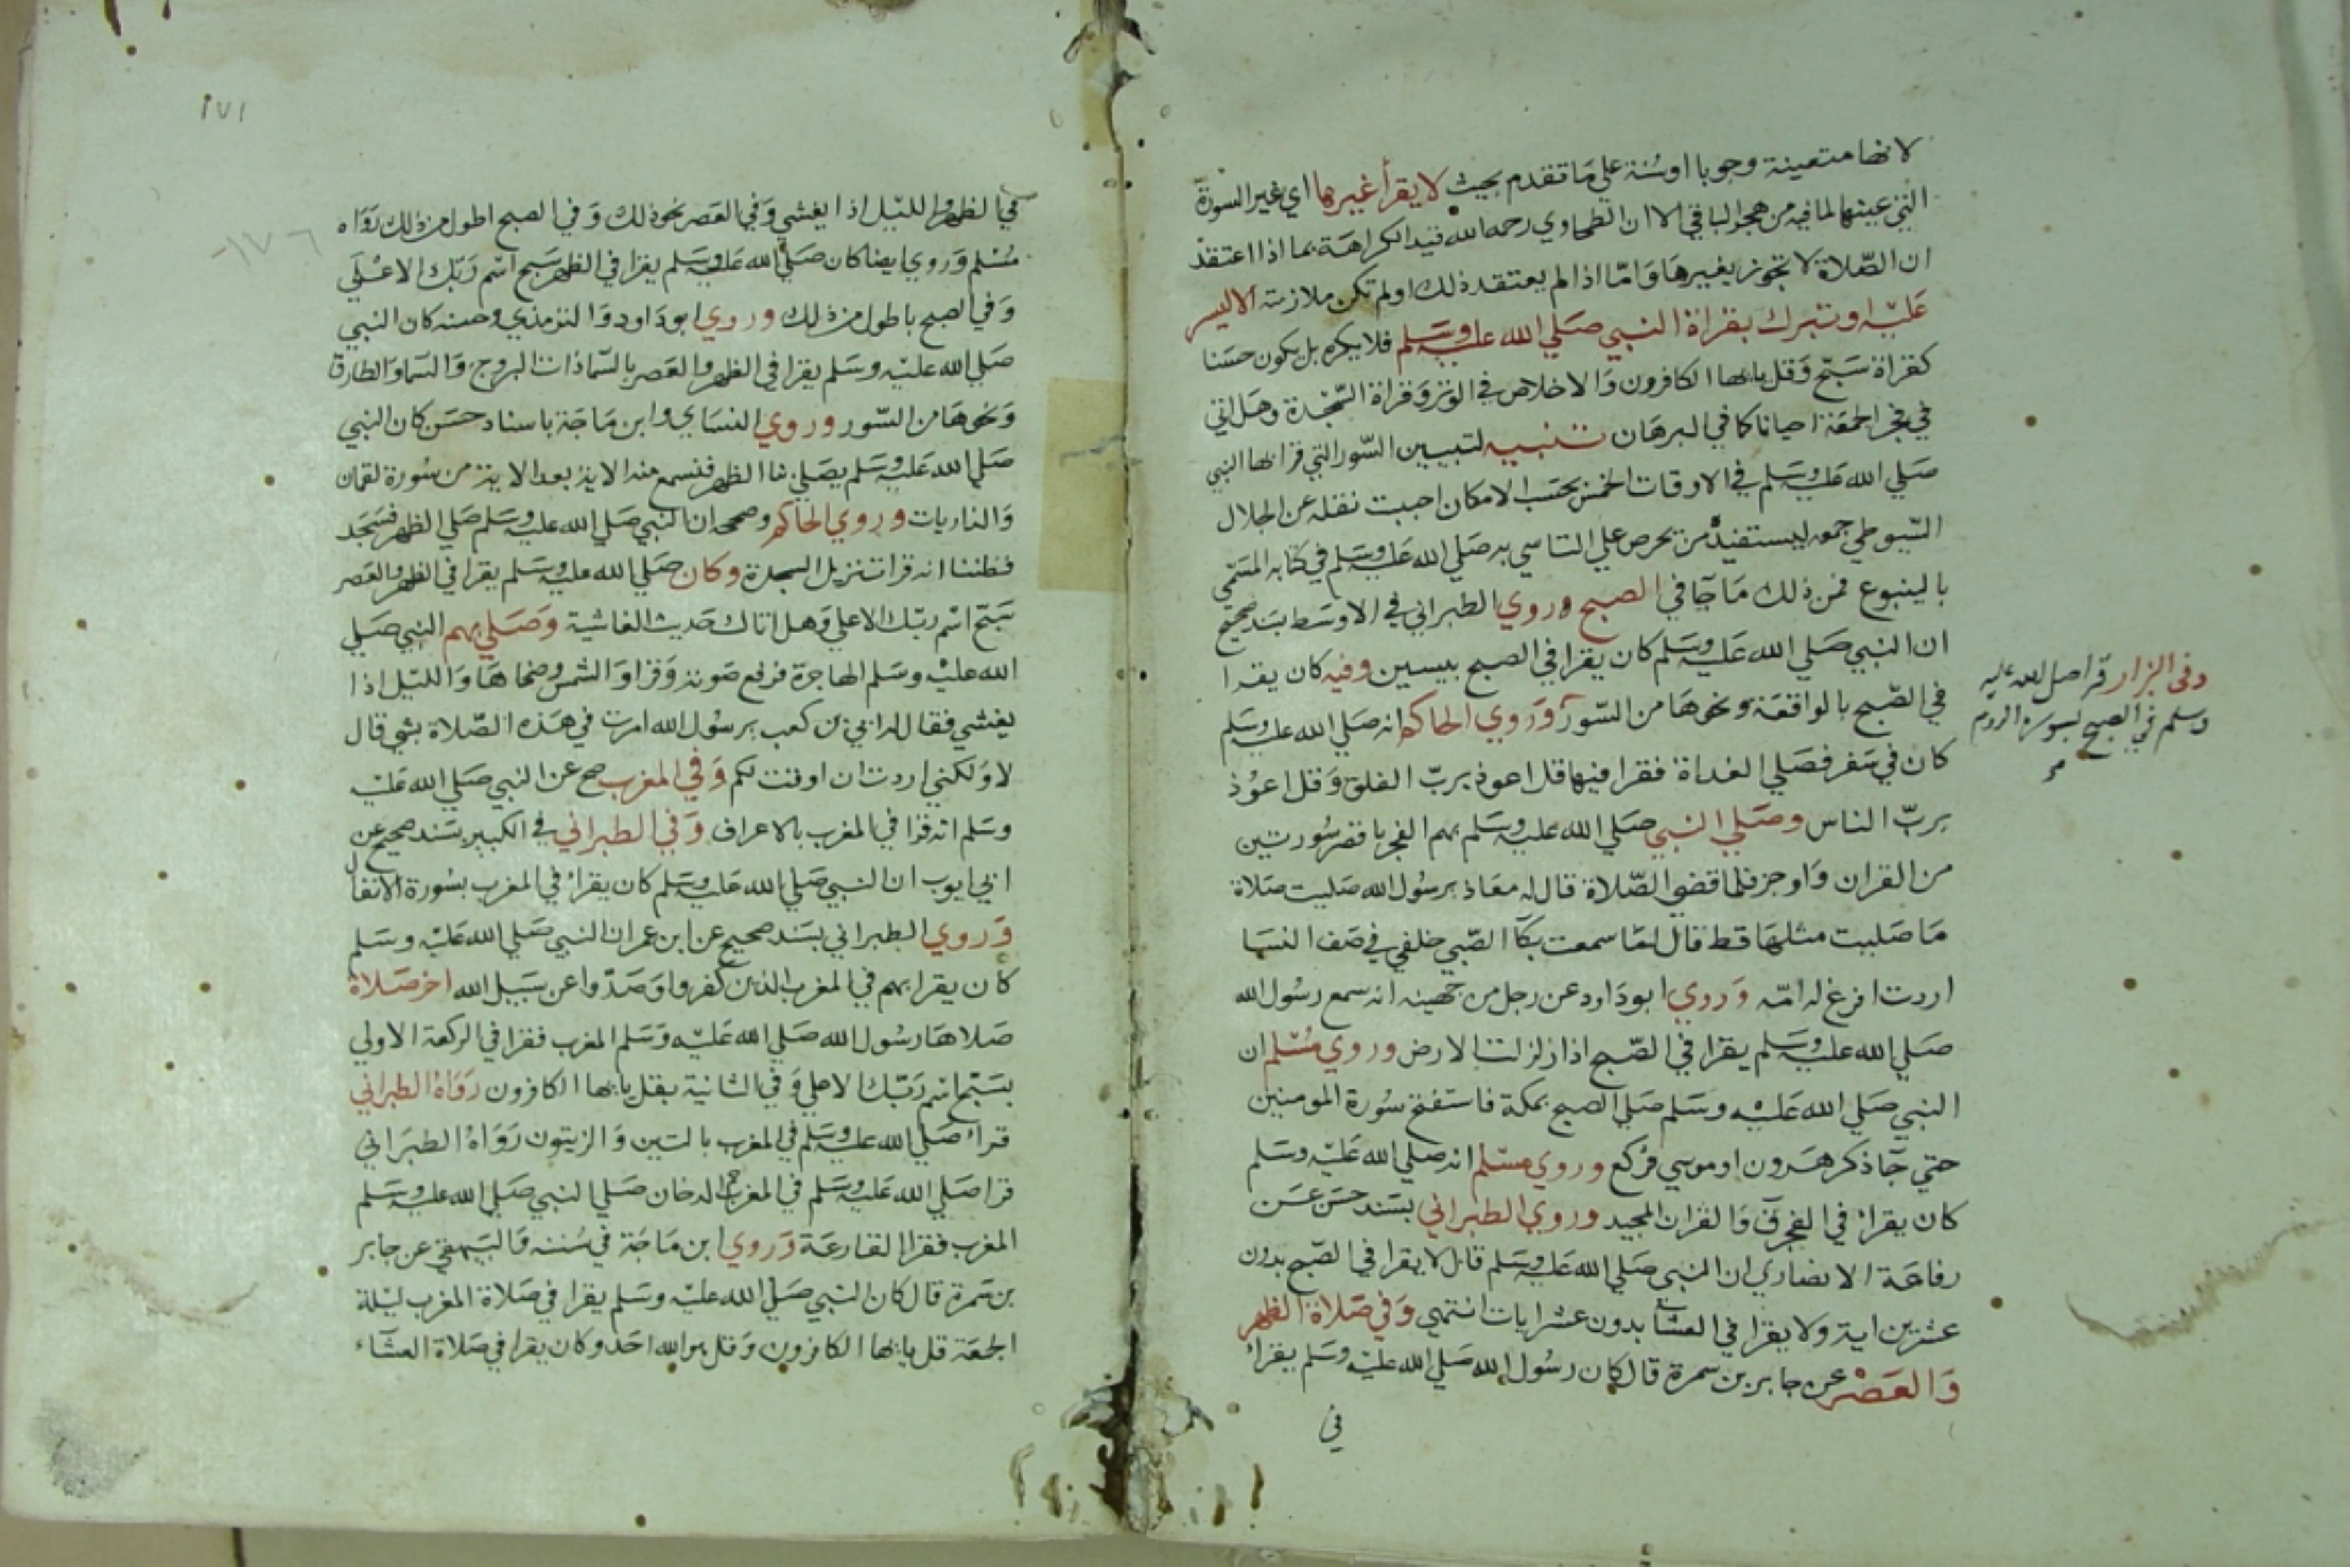 لانها متعينة وجوبا او سنة علي ما تقدم بحيث لا يقرأ غيرها اي غير السورة
التي عينها لما فيه من هجر الباقي الا ان الطحاوي رحمه الله قيد الكراهة بما اذا اعتقد
ان الصلاة لا تجوز بغيرها واما اذا لم يعتقد ذلك او لم تكن ملازمته الا ليسر
عليه او تبرك بقراة النبي صلي الله عليه وسلم فلا يكره بل يكون حسنا
كقراة سبح وقل يايها الكافرون والاخلاص في الوتر وقراة السجدة وهل اتي
في فجر الجمعة احيانا كما في البرهان تنبيه لتبيين السور التي قرا بها النبي
صلي الله عليه وسلم في الاوقات الخمس بحسب الامكان احببت نقله عن الجلال
السيوطي جمعه ليستفيده من يحرص علي التاسي به صلي الله عليه وسلم في كتابه المسمي
بالينبوع فمن ذلك ما جا في الصبح وروي الطبراني في الاوسط بسند صحيح
ان النبي صلي الله عليه وسلم كان يقرا في الصبح بيسين وفيه كان يقرا
في الصبح بالواقعة ونحوها من السور وروي الحاكم انه صلي الله عليه وسلم
وفي البزار قرا صلي الله عليه
وسلم في الصبح بسورة الروم
كان في سفر فصلي الغداة فقرا فيها قل اعوذ برب الفلق وقل اعوذ
برب الناس وصلي النبي صلي الله عليه وسلم بهم الفجر باقصر سورتين
من القران واوجز فلما قضي الصلاة قال له معاذ يرسول الله صليت صلاة
ما صليت مثلها قط قال لما سمعت بكا الصبي خلفي في صف النسا
اردت افرغ له امه وروي ابو داود عن رجل من جهينه انه سمع رسول الله
صلي الله عليه وسلم يقرا في الصبح اذا زلزلت الارض وروي مسلم ان
النبي صلي الله عليه وسلم صلي الصبح بمكة فاستفتح سورة المومنين
حتي جا ذكر هرون او موسي فركع وروي مسلم انه صلي الله عليه وسلم
كان يقرا في الفجر ق والقران المجيد وروي الطبراني بسند حسن عن
رفاعة الانصاري ان النبي صلي الله عليه وسلم قال لا يقرا في الصبح بدون
عشرين اية ولا يقرا في العشا بدون عشر ايات انتهي وفي صلاة الظهر
والعصر عن جابر بن سمرة قال كان رسول الله صلي الله عليه وسلم يقرا
في
١٧١
١٧٦
في الظهر والليل اذا يغشي وفي العصر نحو ذلك وفي الصبح اطول من ذلك رواه
مسلم وروي ايضا كان صلي الله عليه وسلم يقرا في الظهر سبح اسم ربك الاعلي
وفي الصبح باطول من ذلك وروي ابو داود والترمذي وحسنه كان النبي
صلي الله عليه وسلم يقرا في الظهر والعصر بالسما ذات البروج والسما والطارق
ونحوها من السور وروي النساي وابن ماجة باسناد حسن كان النبي
صلي الله عليه وسلم يصلي بنا الظهر فنسمع منه الاية بعد الاية من سورة لقمان
والذاريات وروي الحاكم وصححه ان النبي صلي الله عليه وسلم صلي الظهر فسجد
فظننا انه قرا تنزيل السجدة وكان صلي الله عليه وسلم يقرا في الظهر والعصر
سبح اسم ربك الاعلي وهل اتاك حديث الغاشية وصلي بهم النبي صلي
الله عليه وسلم الهاجرة فرفع صوته وقرا والشمس وضحاها والليل اذا
يغشي فقال له ابي بن كعب يرسول الله امرت في هذه الصلاة بشي قال
لا ولكني اردت ان اوقت لكم وفي المغرب صح عن النبي صلي الله عليه
وسلم انه قرا في المغرب بالاعراف وفي الطبراني في الكبير بسند صحيح عن
ابي ايوب ان النبي صلي الله عليه وسلم كان يقرا في المغرب بسورة الانفال
وروي الطبراني بسند صحيح عن ابن عمر ان النبي صلي الله عليه وسلم
كان يقرا بهم في المغرب الذين كفروا وصدوا عن سبيل الله اخر صلاة
صلاها رسول الله صلي الله عليه وسلم المغرب فقرا في الركعة الاولي
بسبح اسم ربك الاعلي وفي الثانية بقل يايها الكافرون رواه الطبراني
قرا صلي الله عليه وسلم في المغرب بالتين والزيتون رواه الطبراني
قرا صلي الله عليه وسلم في المغرب حم الدخان صلي النبي صلي الله عليه وسلم
المغرب فقرا القارعة وروي ابن ماجة في سننه والبيهقي عن جابر
بن سمرة قال كان النبي صلي الله عليه وسلم يقرا في صلاة المغرب ليلة
الجمعة قل يايها الكافرون وقل هو الله احد وكان يقرا في صلاة العشاء